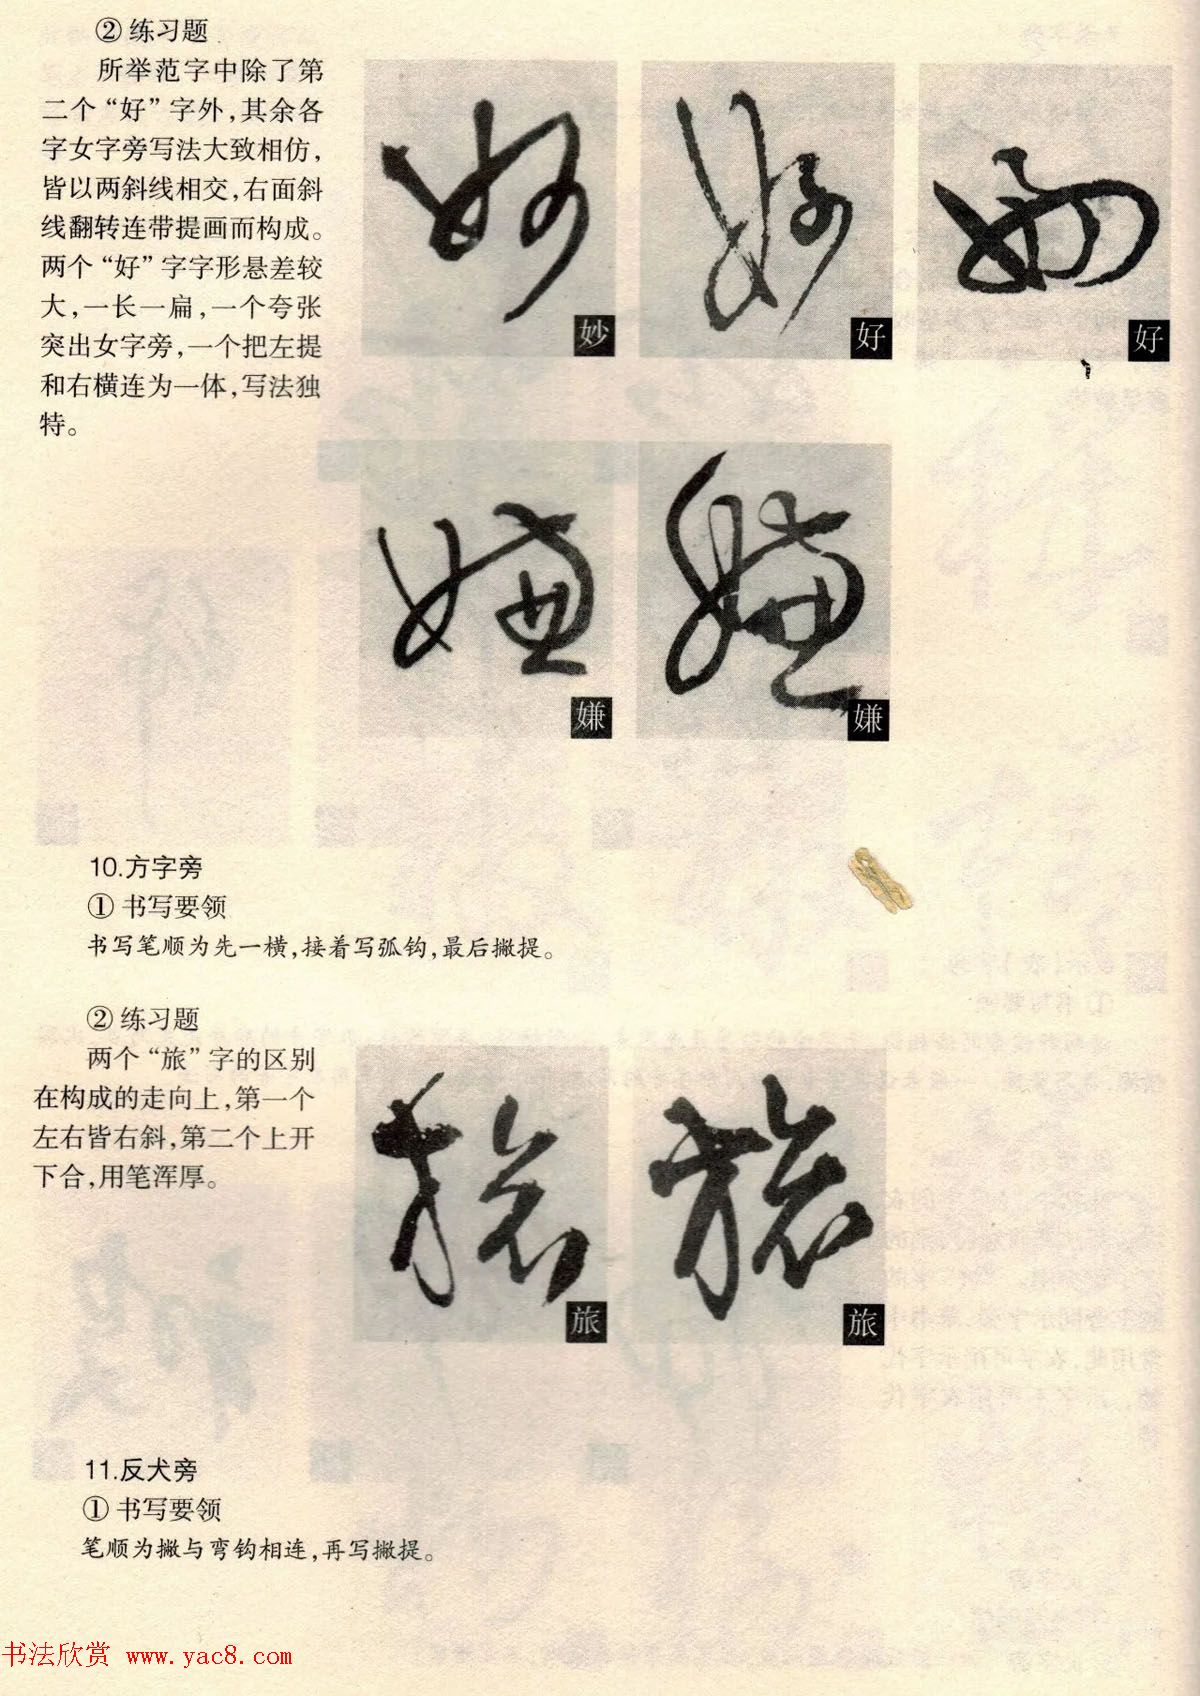 ② 练习题
所举范字中除了第
二个“好”字外，其余各
字女字旁写法大致相仿，
皆以两斜线相交，右面斜
线翻转连带提画而构成。
两个“好”字字形悬差较
大，一长一扁，一个夸张
突出女字旁，一个把左提
和右横连为一体，写法独
特。
妙
好
好
嫌
嫌
10.方字旁
① 书写要领
书写笔顺为先一横，接着写弧钩，最后撇提。
② 练习题
两个“旅”字的区别
在构成的走向上，第一个
左右皆右斜，第二个上开
下合，用笔浑厚。
旅
旅
11.反犬旁
① 书写要领
笔顺为撇与弯钩相连，再写撇提。
书法欣赏 www.yac8.com